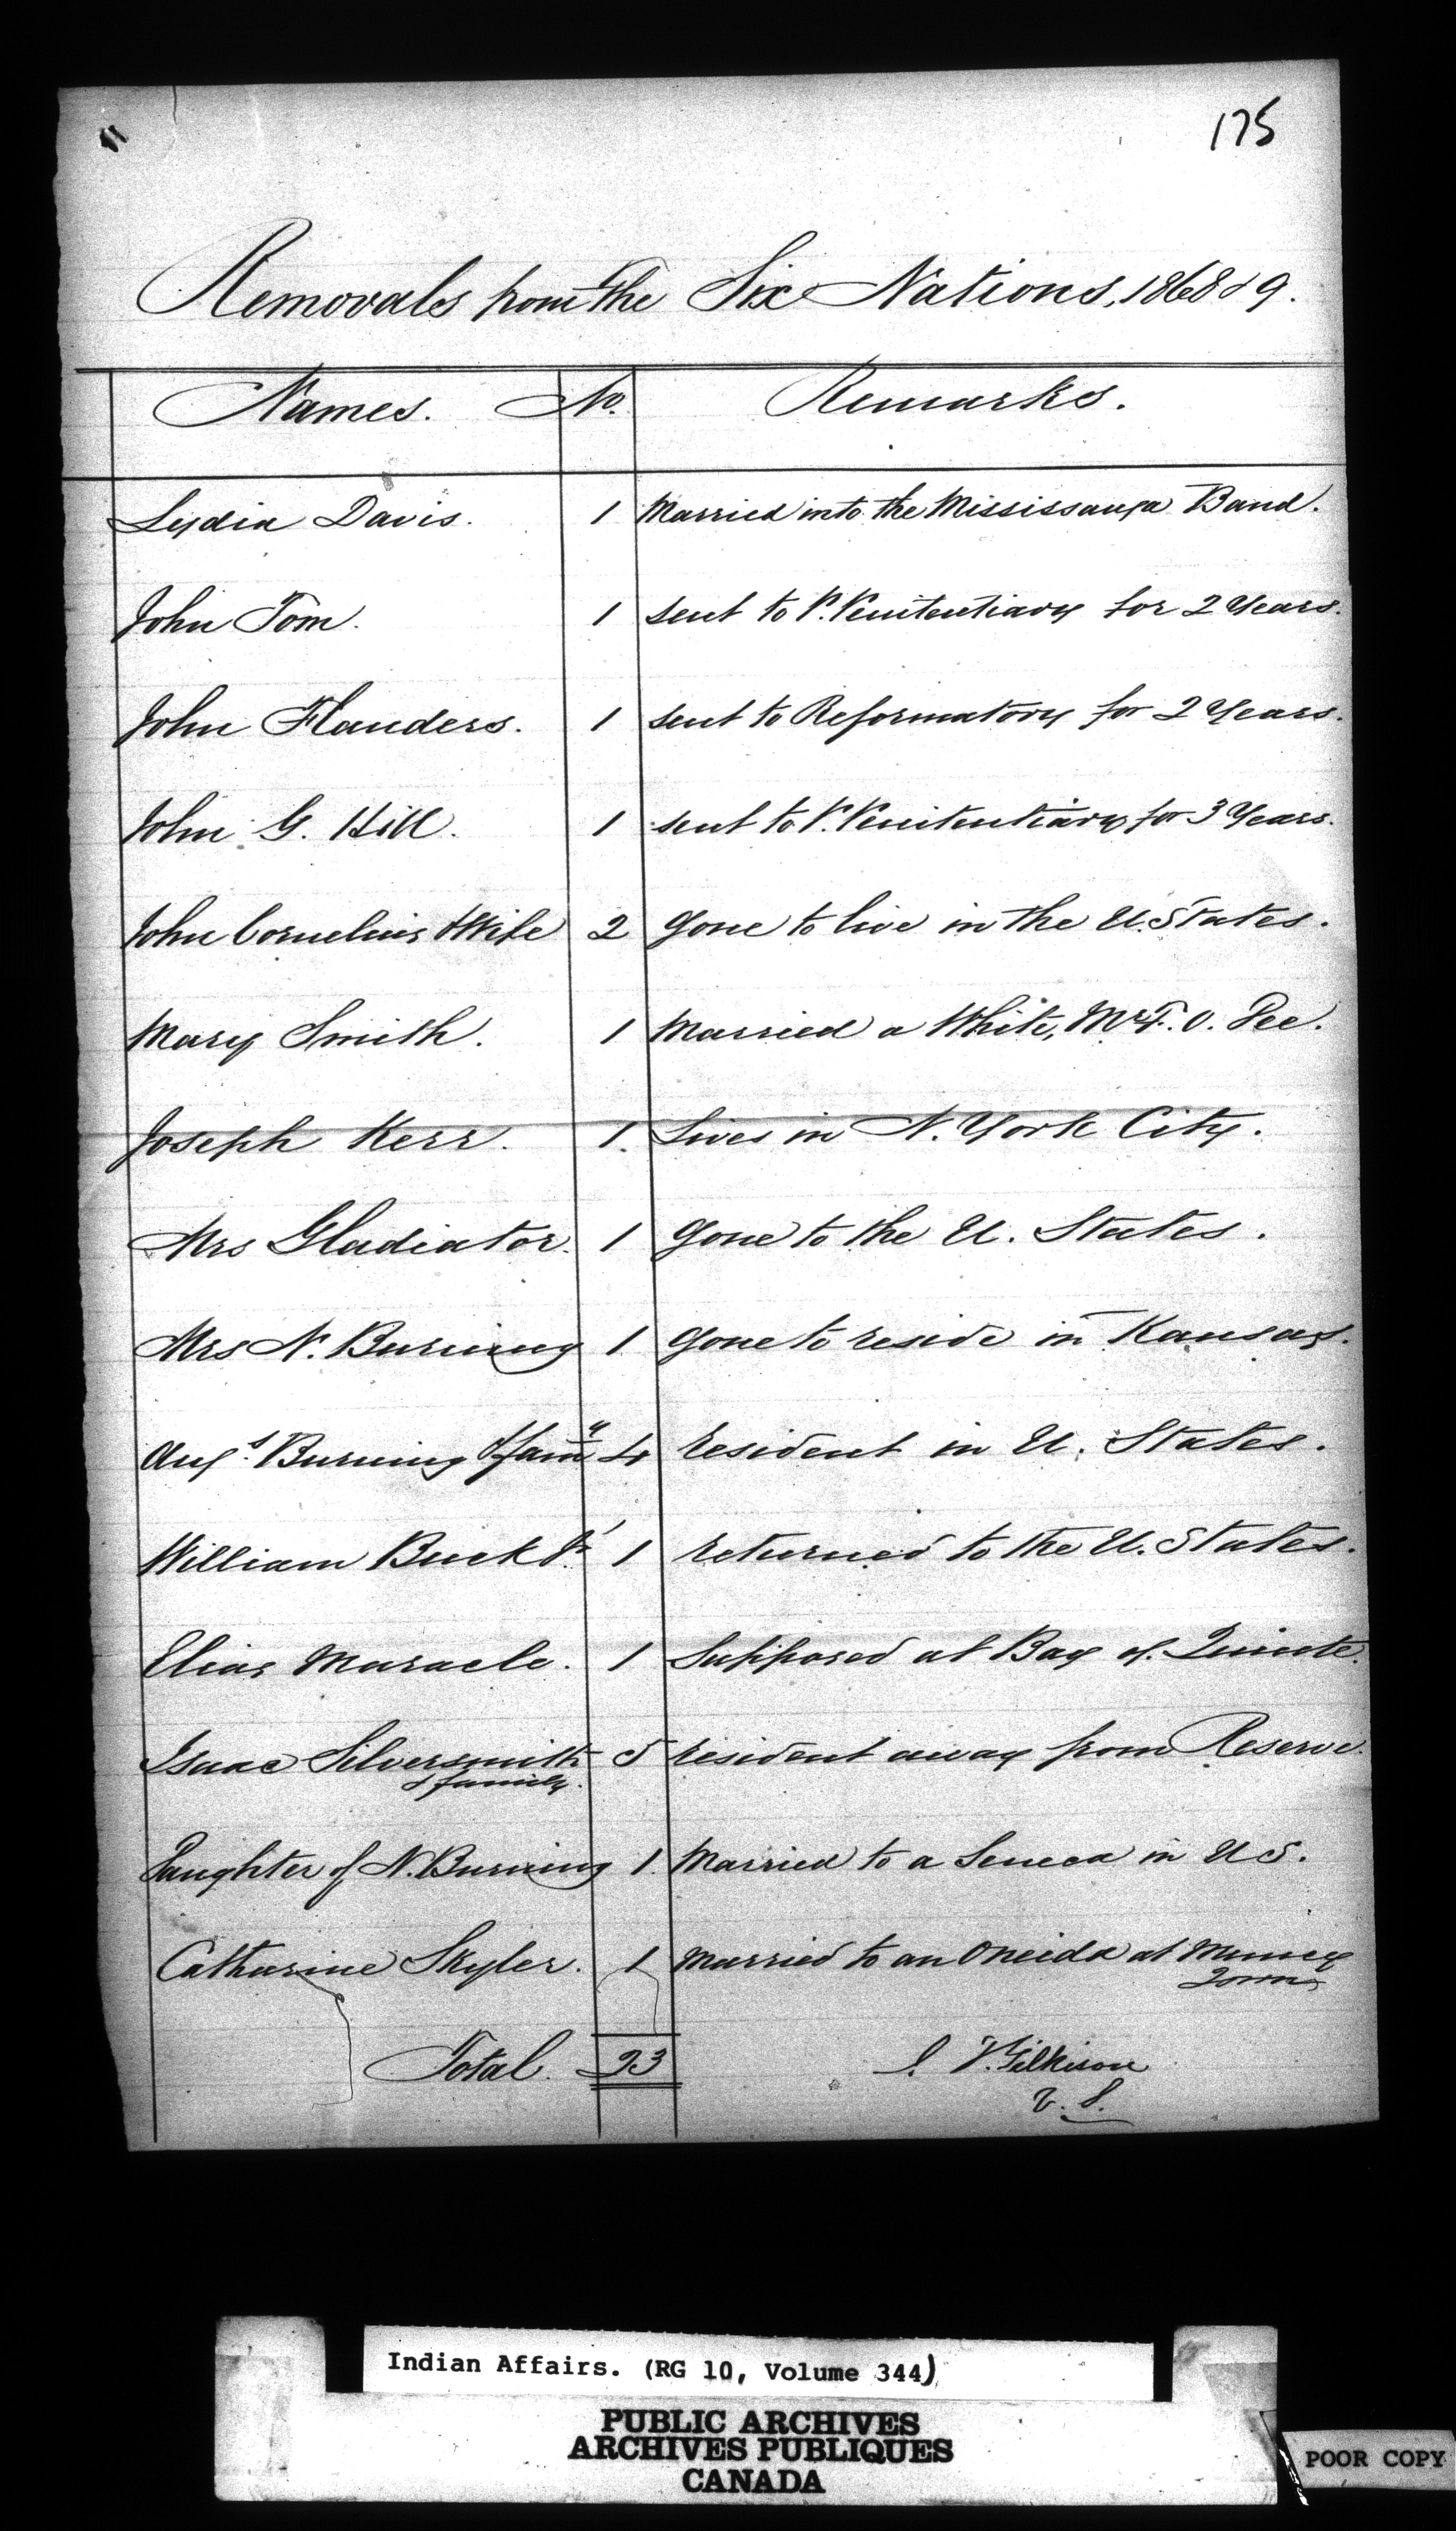 175
Removals from the Six Nations, 1868 & 9.
Names. No. Remarks.
Lydia Davis. 1 Married into the Mississauga Band.
John Tom. 1 sent to P. Penitentiary for 2 Years.
John Flanders. 1 sent to Reformatory for 2 Years.
John G. Hill. 1 sent to P. Penitentiary for 3 Years.
John Cornelius & Wife 2 gone to live in the U. States.
Mary Smith. 1 Married a White, Mr T. O. Pee.
Joseph Kerr. 1. Lives in N. York City.
Mrs Gladiator. 1 gone to the U. States.
Mrs N. Burning 1 gone to reside in Kansas.
Augs. Burning & famy 4 resident in U. States.
William Buck Jr. 1 returned to the U. States.
Elias Maracle. 1 Supposed at Bay of Quinte.
Isaac Silversmith 5 resident away from Reserve.
& family.
Daughter of N. Burning 1. Married to a Seneca in U S.
Catharine Skyler. 1 married to an Oneida at Muncey
Town
Total. 23 J. T. Gilkison
V. S.
Indian Affairs. (RG 10, Volume 344)
PUBLIC ARCHIVES
ARCHIVES PUBLIQUES
CANADA
POOR COPY